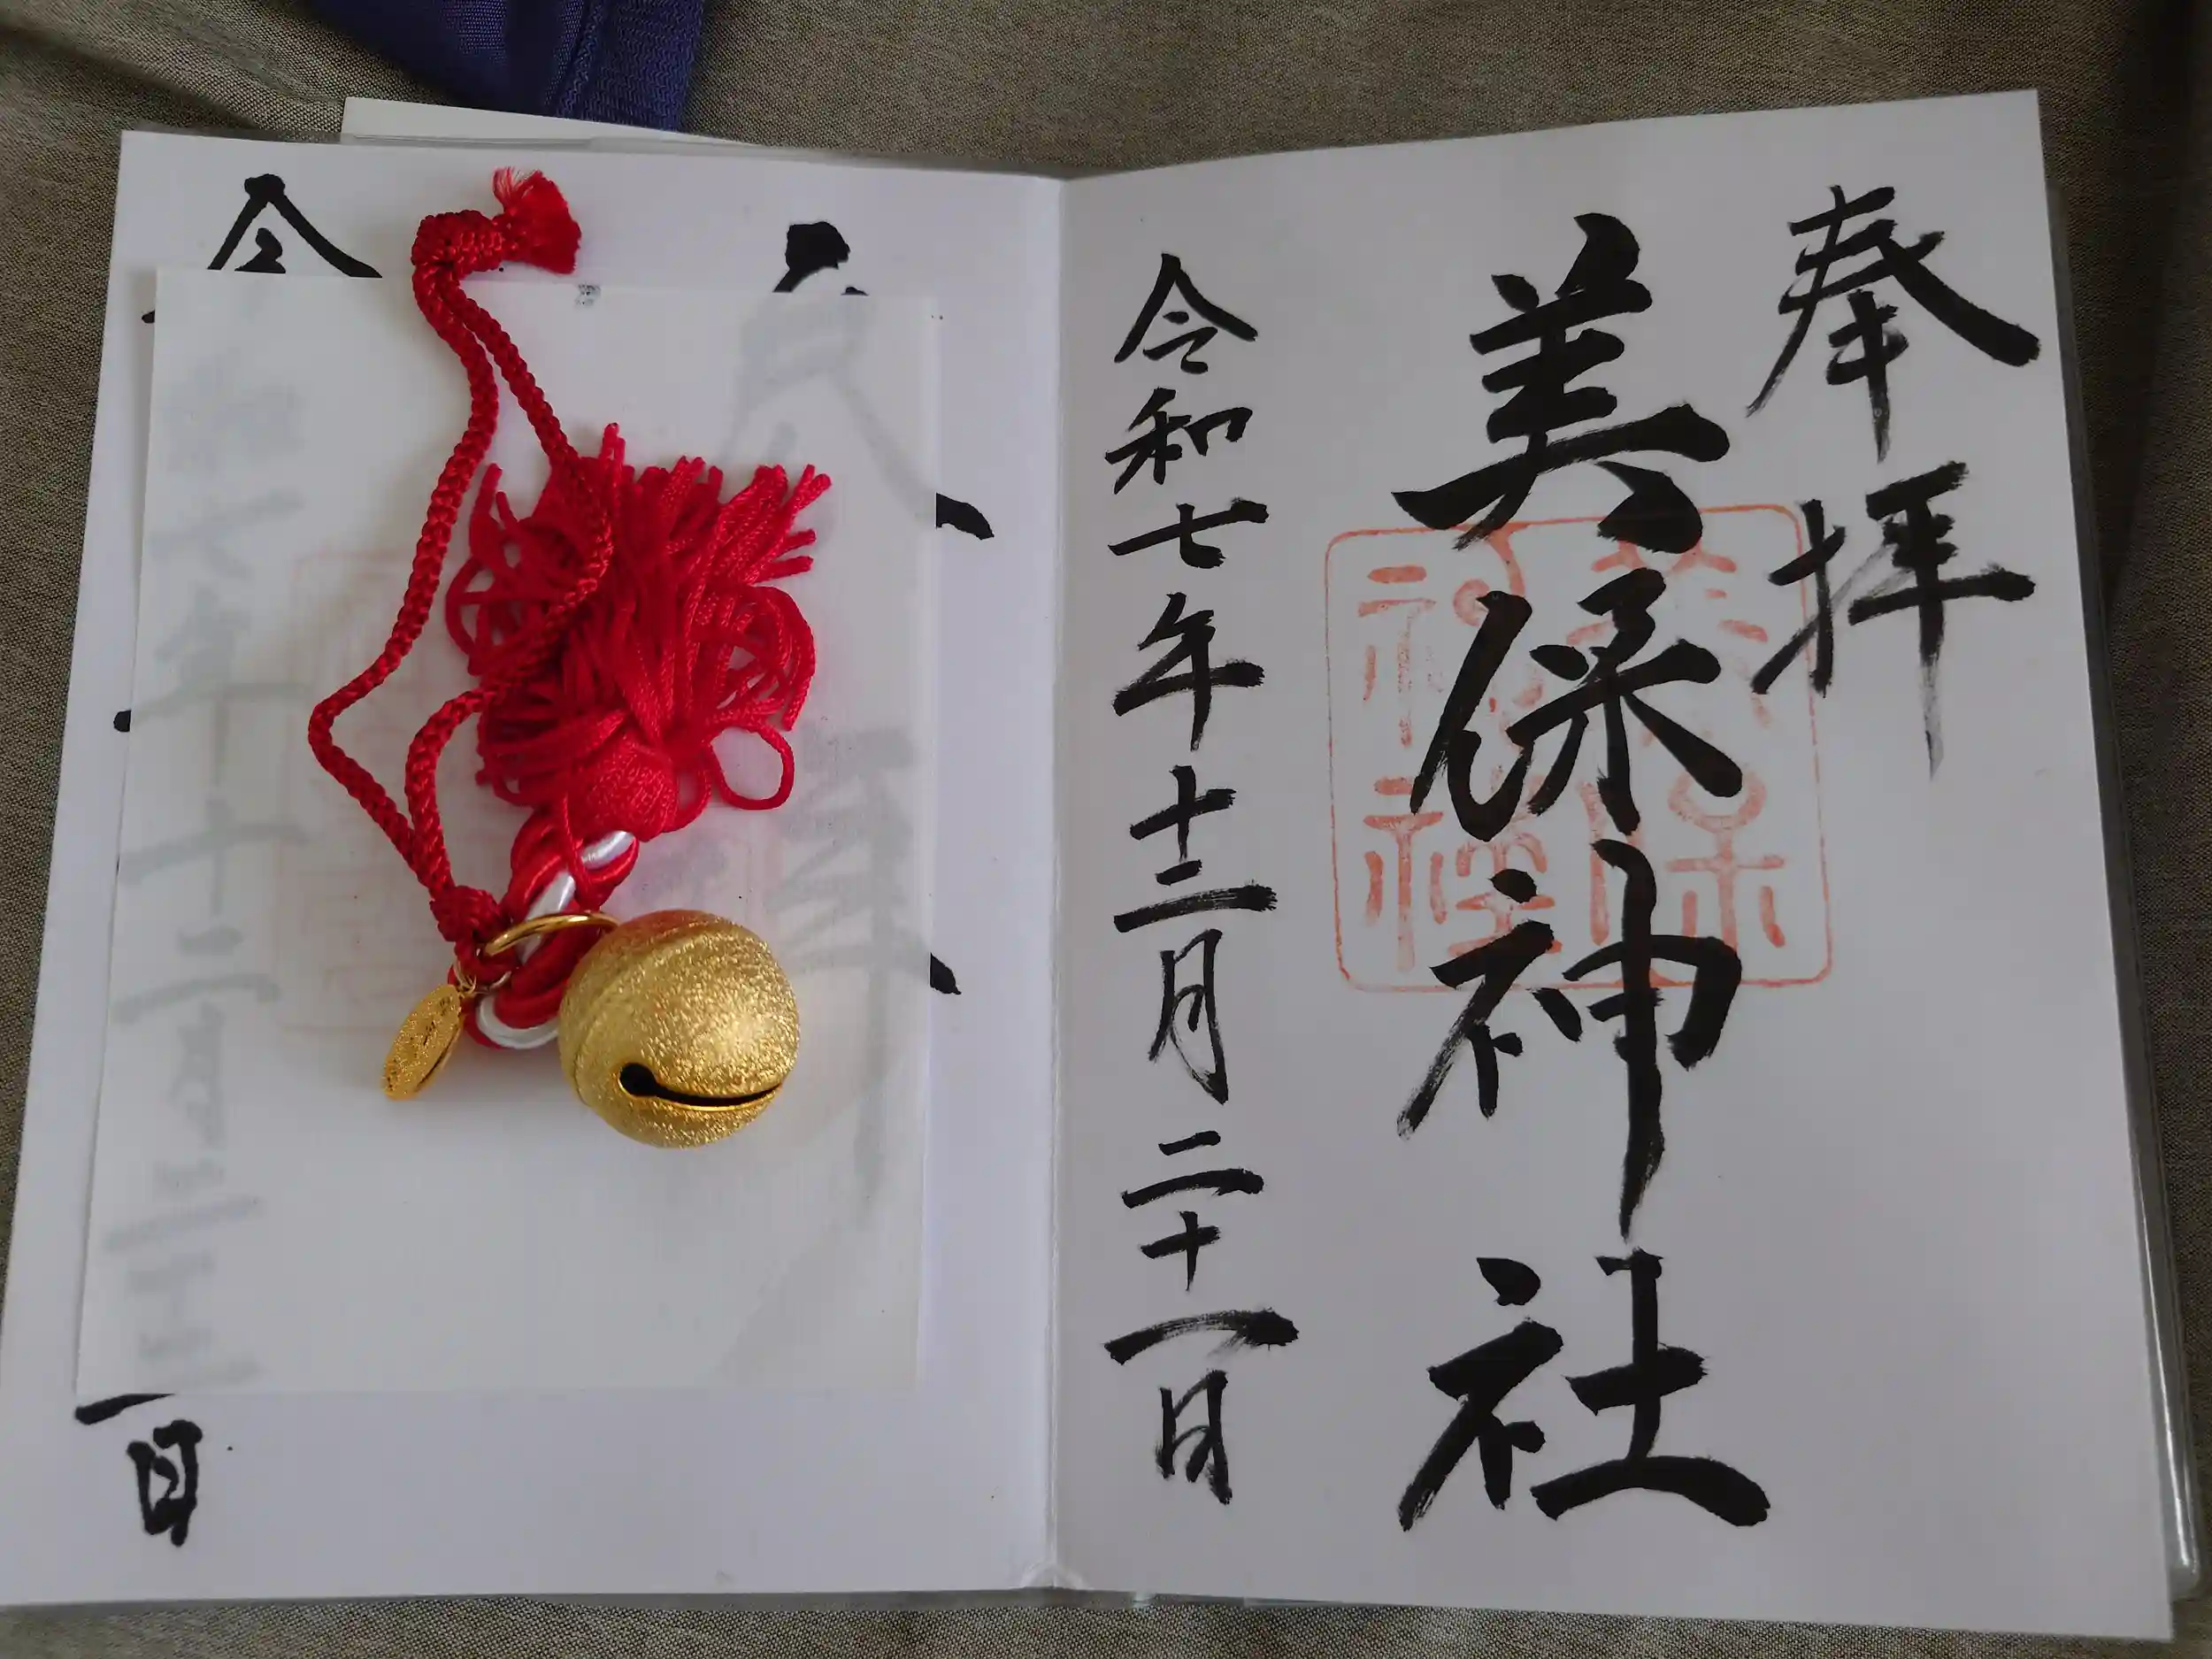 奉拝
美保神社
美保
神社
令和七年十二月二十一日
令
日